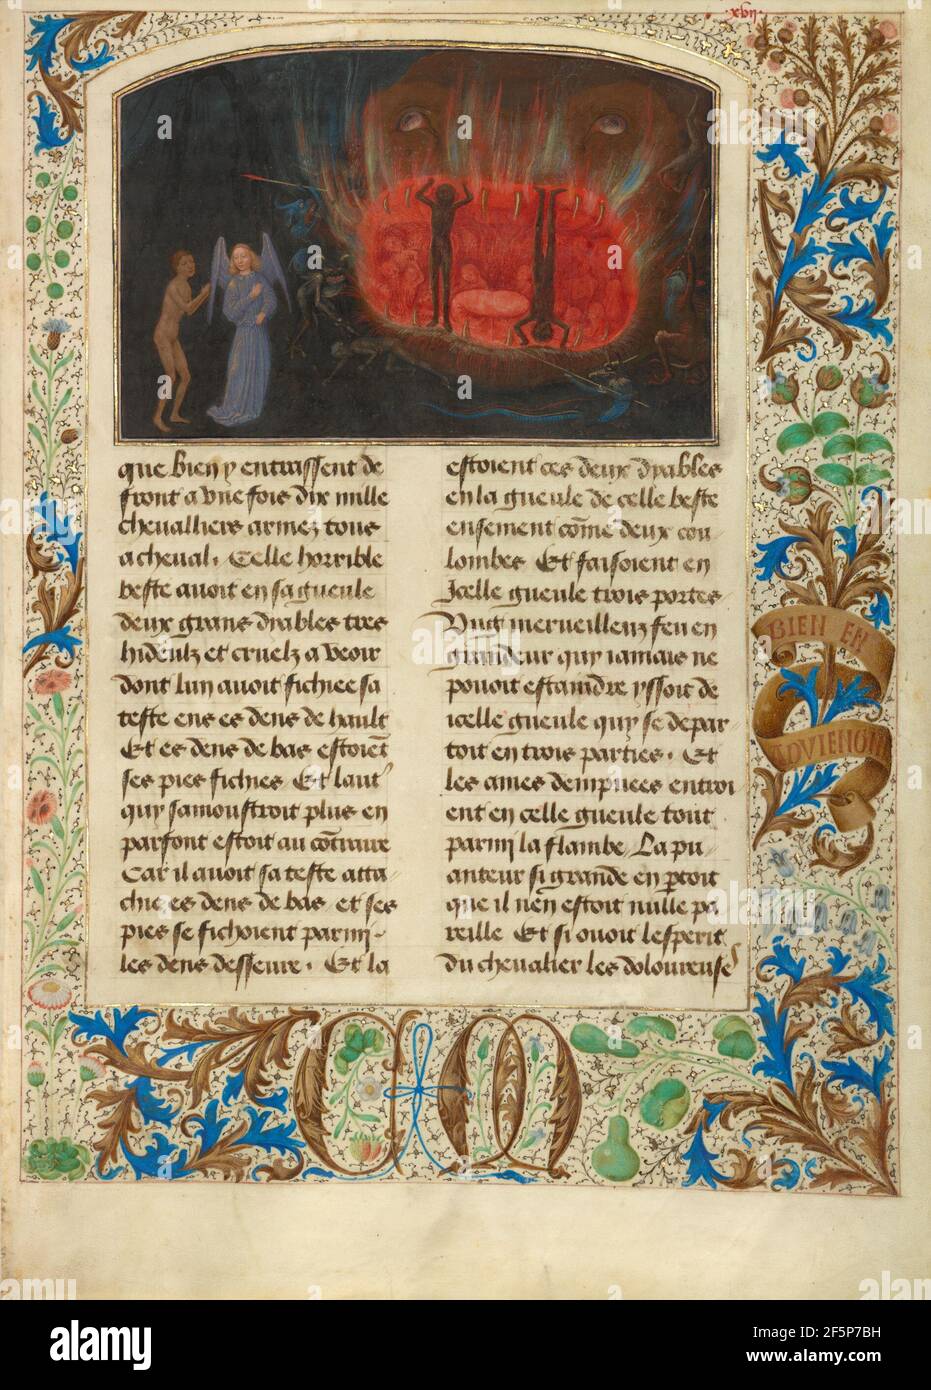 .xvij.
que bien y entrassent de
front a vne fois dix mille
cheualliers armez tous
a cheual. Celle horrible
beste auoit en sa gueule
deux grans dyables tres
hideulz et cruelz a veoir
dont lun auoit fichiee sa
teste ens es dens de hault
Et es dens de bas estoiēt
ses pies fichies. Et laut'
quy samoustroit plus en
parfont estoit au cōtraire
Car il auoit sa teste atta-
chie es dens de bas et ses
pies se fichoient parmy
les dens desseure. Et la
estoient ces deux dyables
en la gueule de celle beste
ensement cōme deux cou
lombes Et faisoient en
Icelle gueule trois portes
Vng merueilleux feu en
grandeur quy iamais ne
pouoit estaindre yssoit de
icelle gueule quy se depar
toit en trois parties. Et
les ames dampnees entroi
ent en celle gueule tout
parmi la flambe. La pu
anteur si grande en ꝑtoit
que il nen estoit nulle pa
reille Et si ouoit lesperit
du cheualier les doloureuses
BIEN EN
ADVIENGNE
CM
alamy
Image ID: 2F5P7BH
www.alamy.com